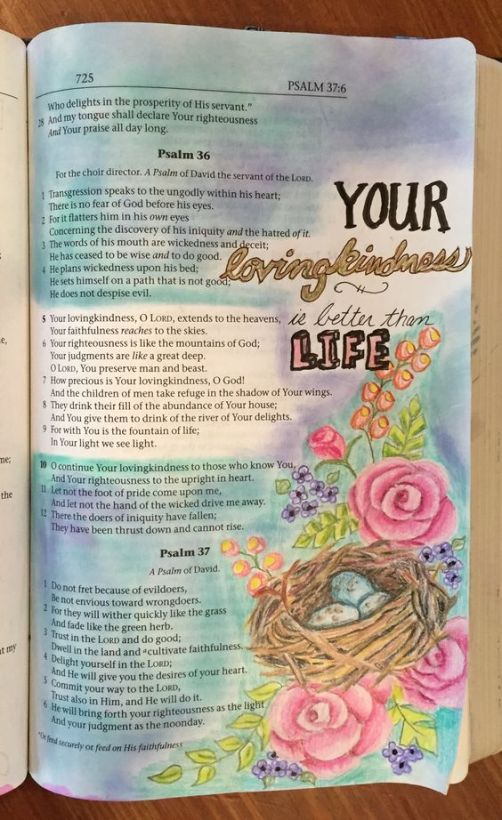 725
PSALM 37:6
Who delights in the prosperity of His servant."
28 And my tongue shall declare Your righteousness
And Your praise all day long.
Psalm 36
For the choir director. A Psalm of David the servant of the LORD.
1 Transgression speaks to the ungodly within his heart;
There is no fear of God before his eyes.
2 For it flatters him in his own eyes
Concerning the discovery of his iniquity and the hatred of it.
3 The words of his mouth are wickedness and deceit;
He has ceased to be wise and to do good.
4 He plans wickedness upon his bed;
He sets himself on a path that is not good;
He does not despise evil.
5 Your lovingkindness, O LORD, extends to the heavens,
Your faithfulness reaches to the skies.
6 Your righteousness is like the mountains of God;
Your judgments are like a great deep.
O LORD, You preserve man and beast.
7 How precious is Your lovingkindness, O God!
And the children of men take refuge in the shadow of Your wings.
8 They drink their fill of the abundance of Your house;
And You give them to drink of the river of Your delights.
9 For with You is the fountain of life;
In Your light we see light.
10 O continue Your lovingkindness to those who know You,
And Your righteousness to the upright in heart.
11 Let not the foot of pride come upon me,
And let not the hand of the wicked drive me away.
12 There the doers of iniquity have fallen;
They have been thrust down and cannot rise.
Psalm 37
A Psalm of David.
1 Do not fret because of evildoers,
Be not envious toward wrongdoers.
2 For they will wither quickly like the grass
And fade like the green herb.
3 Trust in the LORD and do good;
Dwell in the land and ᵃcultivate faithfulness.
4 Delight yourself in the LORD;
And He will give you the desires of your heart.
5 Commit your way to the LORD,
Trust also in Him, and He will do it.
6 He will bring forth your righteousness as the light
And your judgment as the noonday.
ᵃOr feed securely or feed on His faithfulness
YOUR
lovingkindness
is better than
LIFE
e,
me;
the
at my